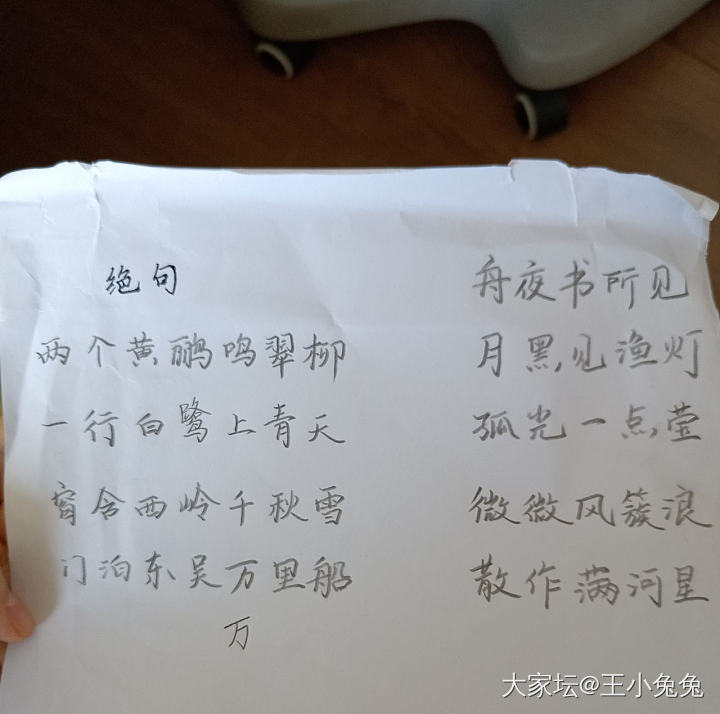 绝句
两个黄鹂鸣翠柳
一行白鹭上青天
窗含西岭千秋雪
门泊东吴万里船
万
舟夜书所见
月黑见渔灯
孤光一点萤
微微风簇浪
散作满河星
大家坛@王小兔兔